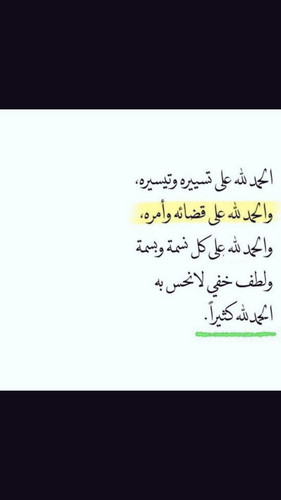 الحمد لله على تسييره وتيسيره،
والحمد لله على قضائه وأمره،
والحمد لله على كل نسمة وبسمة
ولطف خفي لانحس به
الحمد لله كثيراً.